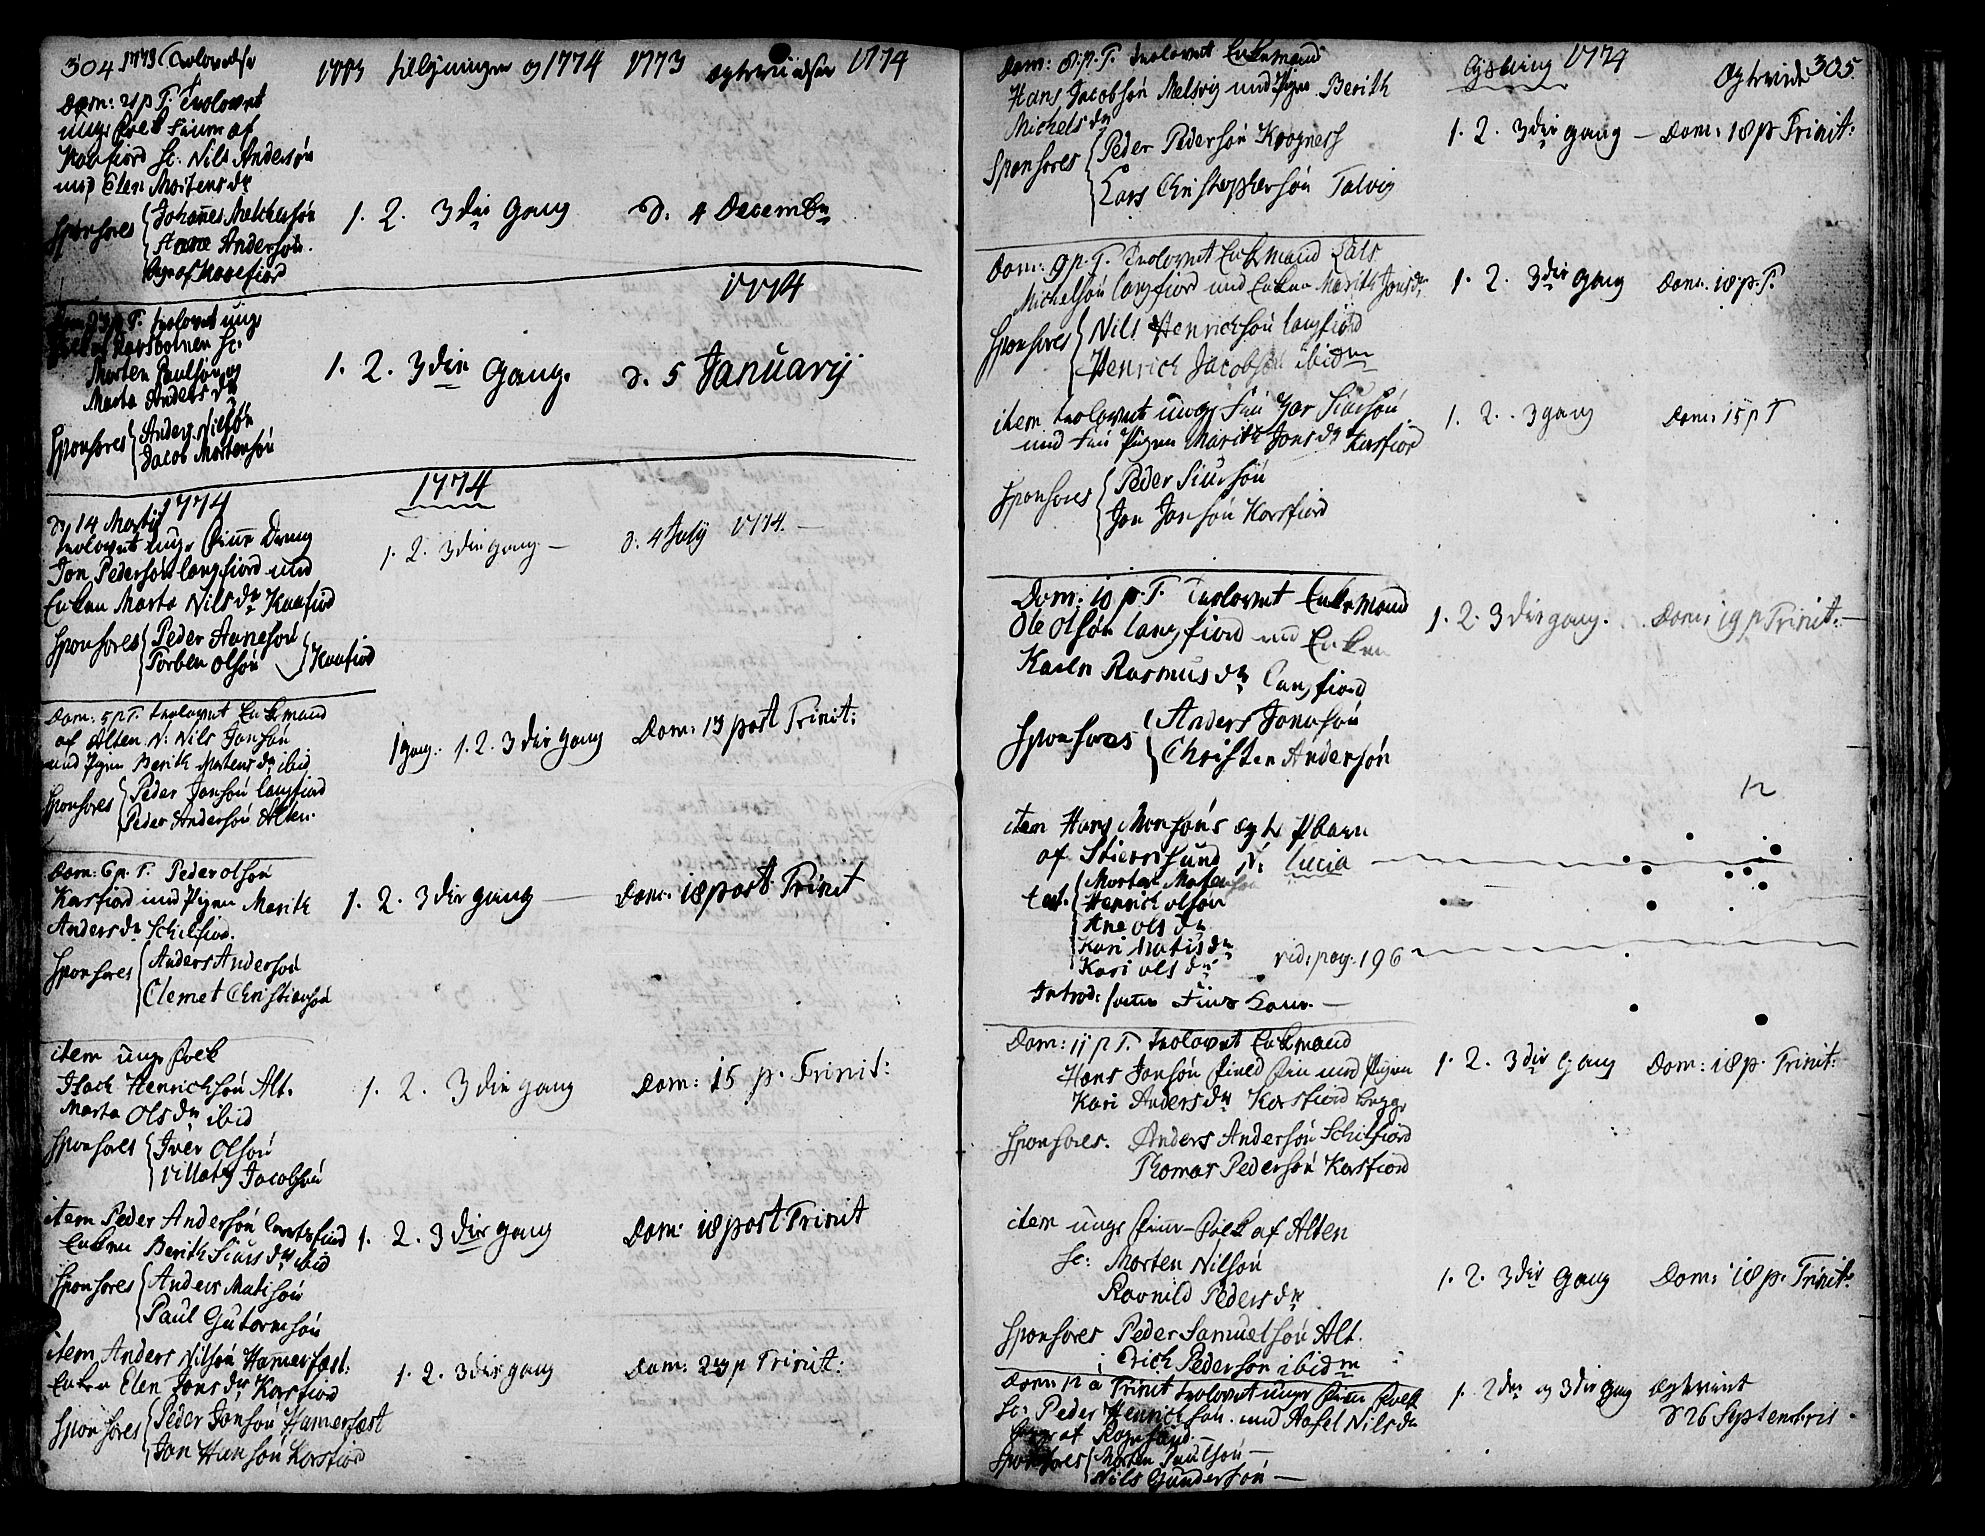 304 1773 Trolovelse
1773 1774 1773 1774
Dom: 21 p T. Trolovet
unge Folk Finner af
Kaafiord Sc: Nils Andersøn
und Elen Mortens dr
Sponsores Johannes Melchersøn
Andersøn
begge af Kaaefiord
1. 2. 3die Gang
d. 4 Decembr
1774
p T. trolovet unge
Folk af Sc:
Morten Paulsøn og
Marta Anders dr
Sponsores Anders Nilsøn
Jacob Mortensøn
1. 2. 3die Gang.
d. 5 Januarij
1774
1774
14 Martij
trolovet unge Finne Dreng
Jon Pedersøn langfiord und
Enken Marta Nils dr Kaafiord
Sponsores Peder Arnesøn
Torben Olsøn Kaafiord
1. 2. 3die gang —
d. 4 July 1774. —
Dom: 5 p T. trolovet Enkemand
af Alten N: Nils Jonsøn
und Pigen Berith Mortens dr ibid
Sponsores Peder Jonsøn langfiord
Peder Andersøn Alten.
1 gang. 1. 2. 3die gang
Dom: 13 post Trinit:
Dom: 6 p. T. Peder Olsøn
Korsfiord und Pigen Marith
Anders dr Schilfior.
Sponsores Anders Andersøn
Clemet Christiansøn
1. 2. 3die gang —
Dom: 18 post Trinit
item unge Folk
Isach Henrichsøn Alt.
Marta Ols dr ibid
Sponsores Iver Olsøn
Jacobsøn
1. 2. 3die gang
Dom: 15 p. Trinit:
item Peder Andersøn
Enken Berith Siurs dr ibid
Sponsores Anders Matisøn
Paul Gutormsøn
1. 2. 3die gang
Dom: 18 post Trinit
item Anders Nilsøn Hamerfæst:
Enken Elen Jons dr Korsfiord
Sponsores Peder Jonsøn Hamerfæst
Jon Hansøn Korsfiord
1. 2. 3die gang
Dom: 23 p Trinit:
Dom: 8. p. T. trolovet Enkemand
Hans Jacobsøn Melsvig und Pigen Berith
Michels dr
Sponsores Peder Pedersøn Krogness
Lars Christophersøn Talvig
1774
305
1. 2. 3die gang — Dom: 18 p Trinit:
Dom: 9 p. T. trolovet Enkemand Lars
Michelsøn langfiord und Enken Marith Jons dr
Sponsores Nils Henrichsøn langfiord
Henrich Jacobsøn ibidm
1. 2. 3die gang
Dom: 18 p. T.
item trolovet unge Siursøn
und Pigen Marith Jons dr Korsfior
Sponsores Peder Siursøn
Jon Jonsøn Korsfiord
1. 2. 3 gang
Dom: 15 p T
Dom: 10 p. T. trolovet Enkemand
Ole Olsøn langfiord und Enken
Karen Rasmus dr langfiord
Sponsores Anders Jonasøn
Christen Andersøn
1. 2. 3die gang.
Dom: 19 p Trinit: —
item Hans Monsøns barn
af Stiernsund N: Lucia
test. Morten
Henrich Olsøn
Ane Ols dr
Kari Matis dr
Kari Ols dr
vid: pag: 196
Introd:
Dom: 11 p T. trolovet Enkemand
Hans Jonsøn und Pigen
Kari Anders dr Korsfiord begge
Sponsores. Anders Andersøn Schilfiord
Thomas Pedersøn Korsfiord
1. 2. 3die Gang
Dom: 18 p. Trinit:
item unge Finne-Folk af Alten
Sc: Morten Nilsøn
Ravnild Peders dr
Sponsores Peder Samuelsøn Alt.
Erich Pedersøn ibidm
1. 2. 3die Gang
Dom: 18 p. Trinit:
Dom: 12 a Trinit trolovet unge Finne Folk
Sc: Peder Henrichsøn und Nils dr
begge af Rognsund.
Sponsores Morten Paulsøn —
Nils Gundersøn —
1. 2den og 3die gang
d 26 Septembris